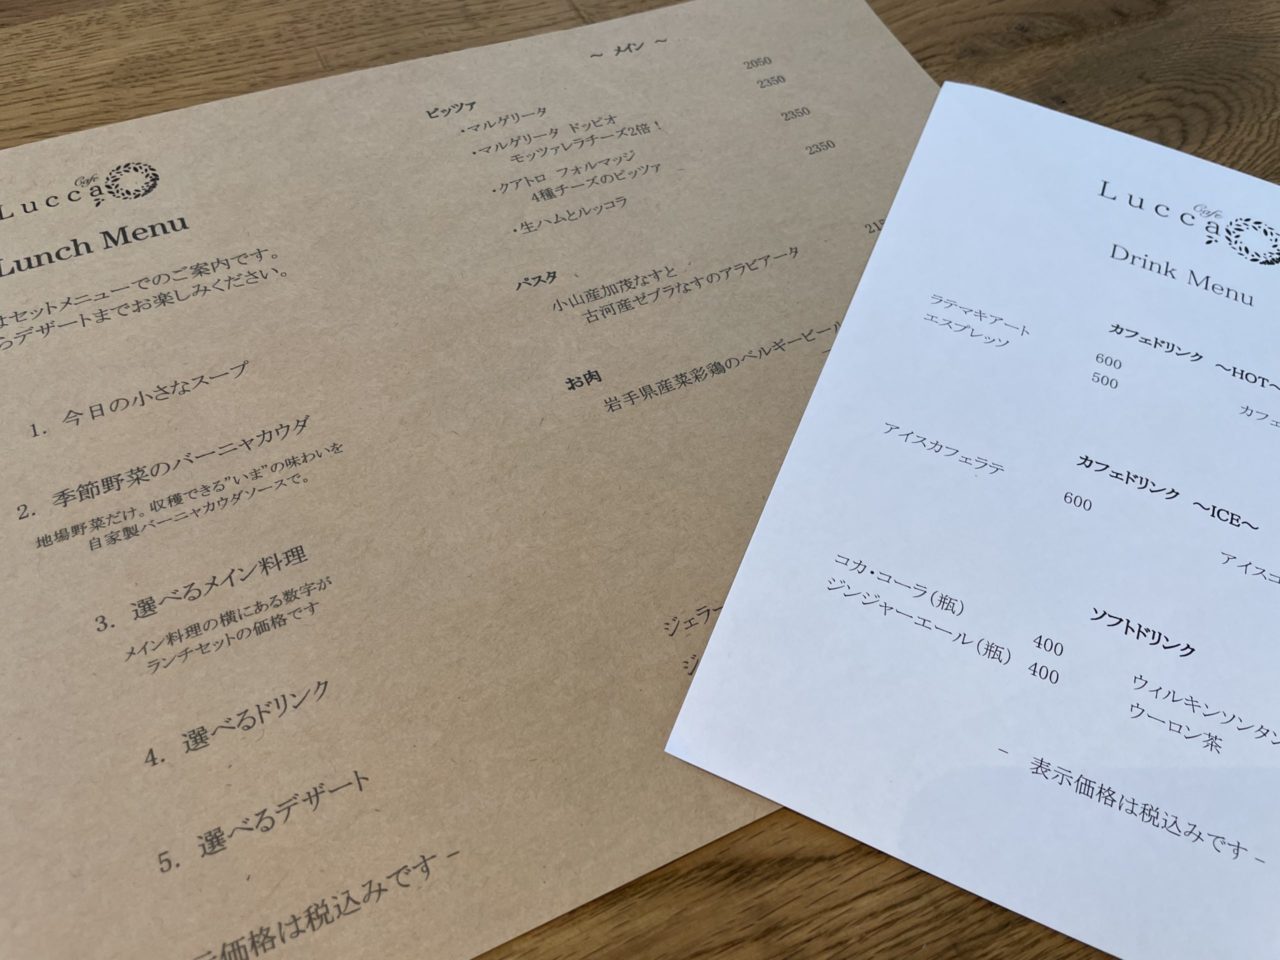 Cafe
Lucca
Lunch Menu
セットメニューでのご案内です。
デザートまでお楽しみください。
1. 今日の小さなスープ
2. 季節野菜のバーニャカウダ
地場野菜だけ。収穫できる"いま"の味わいを
自家製バーニャカウダソースで。
3. 選べるメイン料理
メイン料理の横にある数字が
ランチセットの価格です
4. 選べるドリンク
5. 選べるデザート
価格は税込みです -
～ メイン ～
ピッツァ
・マルゲリータ 2050
・マルゲリータ ドッピオ 2350
モッツァレラチーズ2倍！
・クアトロ フォルマッジ 2350
4種チーズのピッツァ
・生ハムとルッコラ 2350
パスタ
小山産加茂なすと
古河産ゼブラなすのアラビアータ
お肉
岩手県産菜彩鶏のベルギービール
ジェラー
Cafe
Lucca
Drink Menu
カフェドリンク ～HOT～
ラテマキアート 600
エスプレッソ 500
カフェ
カフェドリンク ～ICE～
アイスカフェラテ 600
アイスコ
ソフトドリンク
コカ・コーラ(瓶) 400
ジンジャーエール(瓶) 400
ウィルキンソンタン
ウーロン茶
- 表示価格は税込みです -